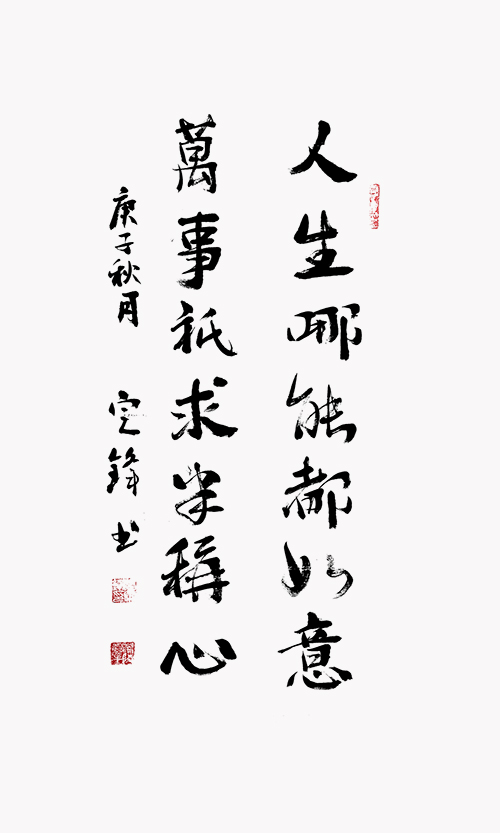 人生哪能都如意
萬事祇求半稱心
庚子秋月 定鋒书